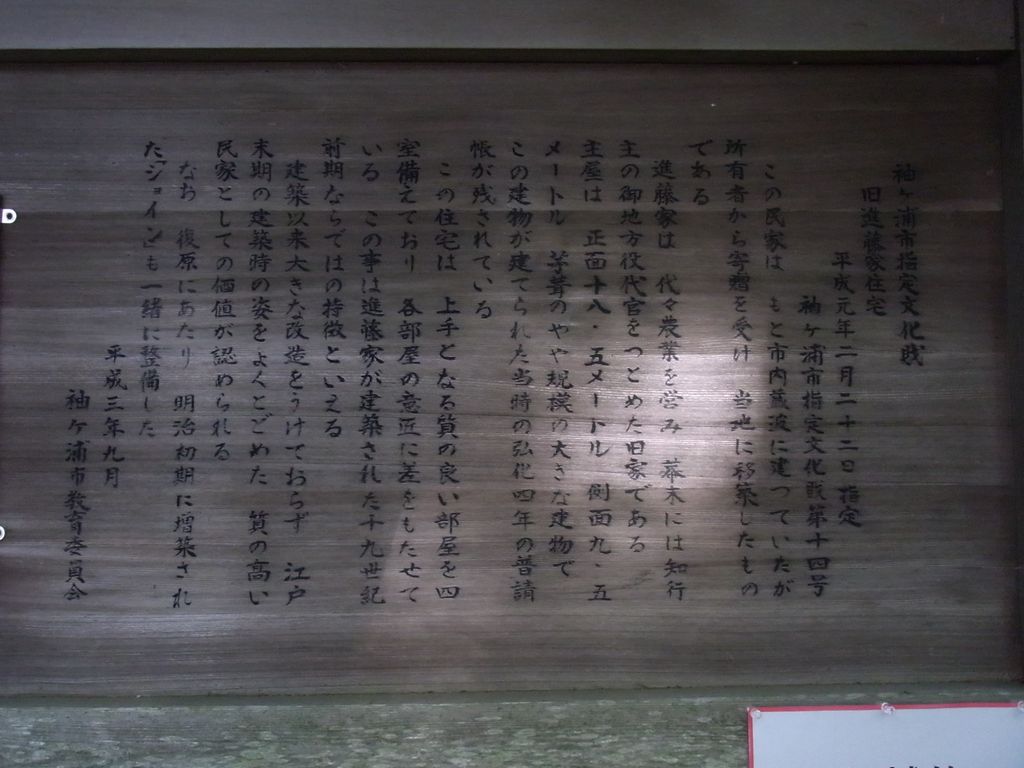 袖ヶ浦市指定文化財
旧進藤家住宅
平成元年二月二十二日指定
袖ヶ浦市指定文化財第十四号
この民家は　もと市内蔵波に建っていたが
所有者から寄贈を受け　当地に移築したもの
である
進藤家は　代々農業を営み　幕末には知行
主の御地方役代官をつとめた旧家である
主屋は　正面十八・五メートル　側面九・五
メートル　茅葺のやや規模の大きな建物で
この建物が建てられた当時の弘化四年の普請
帳が残されている
この住宅は　上手となる質の良い部屋を四
室備えており　各部屋の意匠に差をもたせて
いる　この事は進藤家が建築された十九世紀
前期ならではの特徴といえる
建築以来大きな改造をうけておらず　江戸
末期の建築時の姿をよくとどめた　質の高い
民家としての価値が認められる
なお　復原にあたり　明治初期に増築され
た「ジョイン」も一緒に整備した
平成三年九月
袖ヶ浦市教育委員会